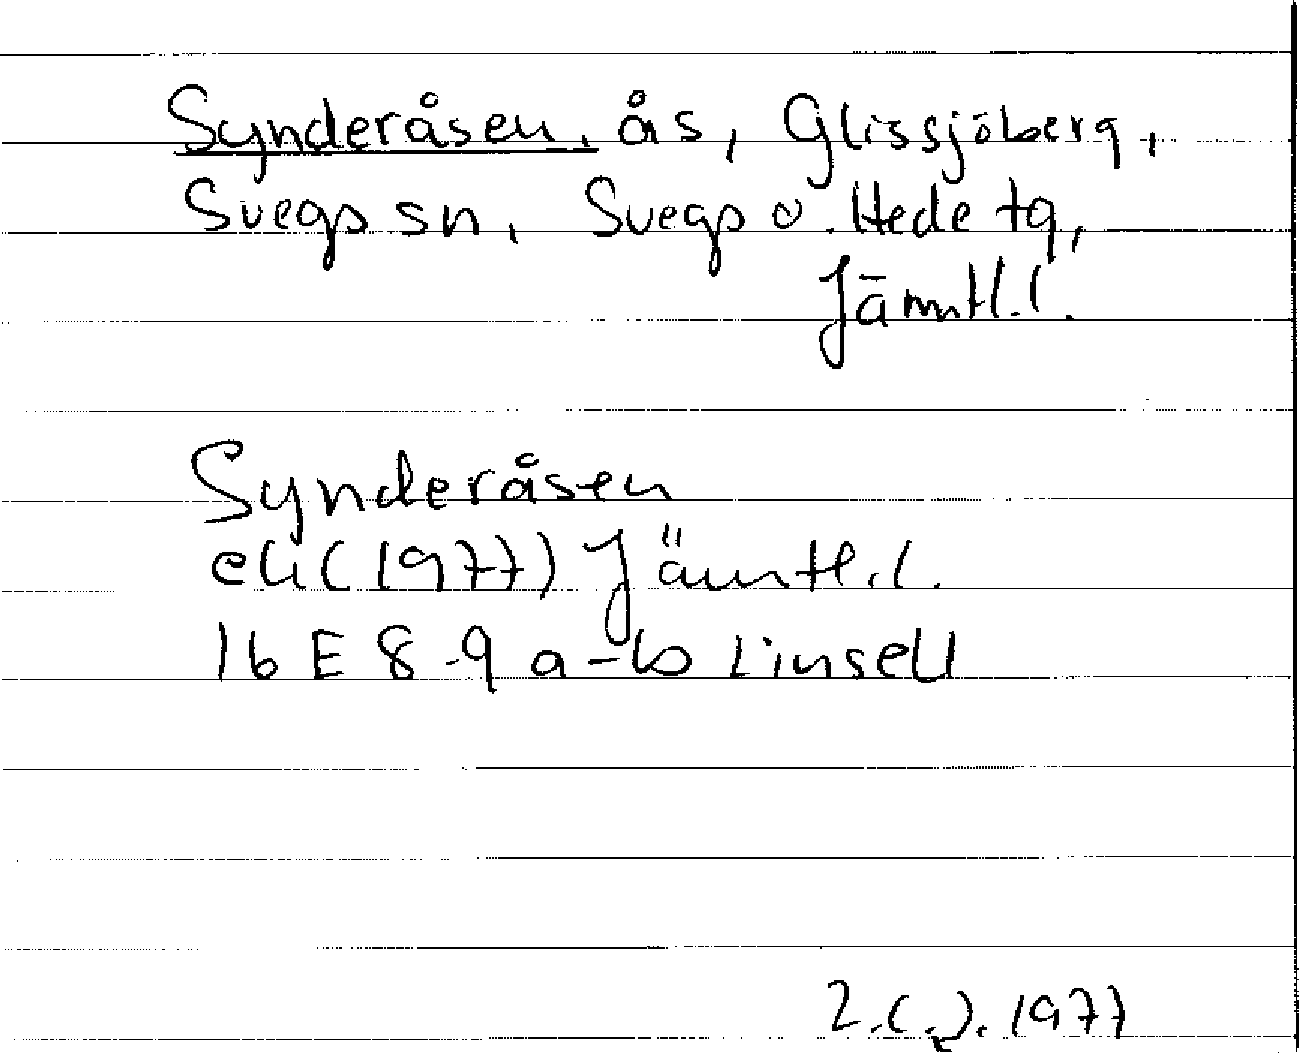 Synderåsen, ås, Glissjöberg,
Svegs sn, Svegs o. Hede tg,
Jämtl. l.
Synderåsen
ek (1977) Jämtl. l.
16 E 8-9 a-b Linsell
1977